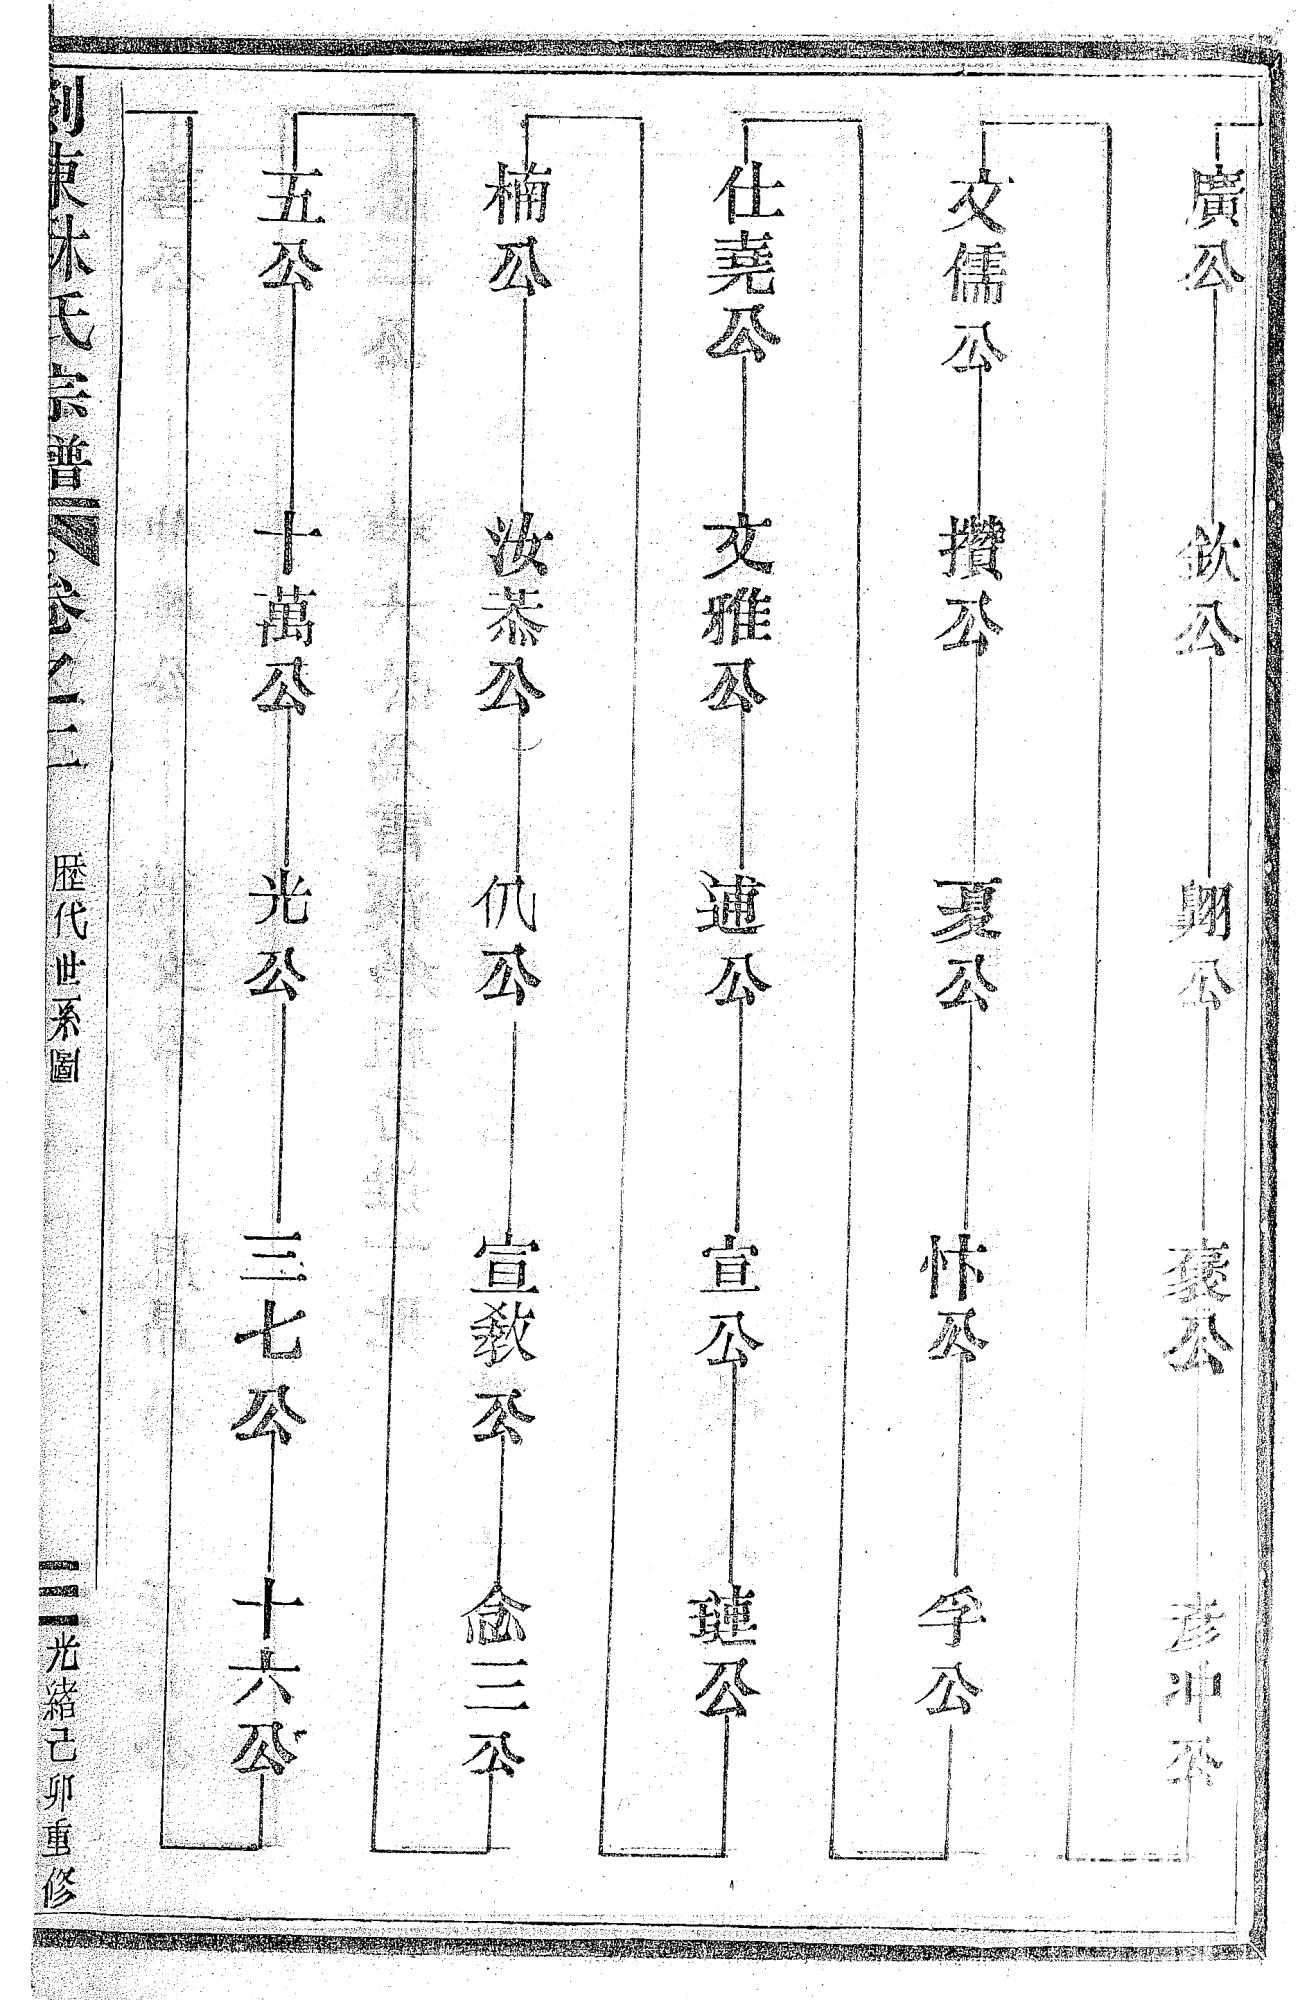 廣公 欽公 翺公 褒公 彥冲公
文儒公 攢公 夏公 忭公 孚公
仕堯公 文雅公 逋公 宣公 璉公
楠公 汝恭公 仉公 宣教公 念三公
五公 十萬公 光公 三七公 十六公
剡東林氏宗譜 卷之二 歷代世系圖 三 光緒己卯重修